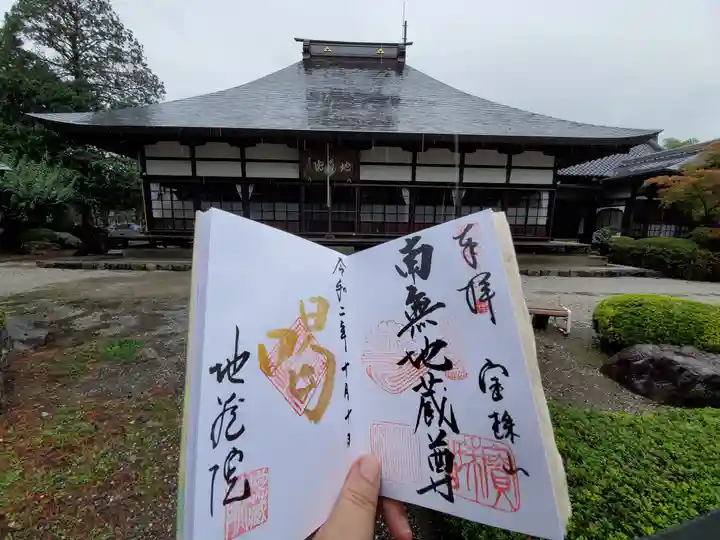 奉拝
宝珠山
南無地蔵尊
令和二年十月十日
喝
地蔵院